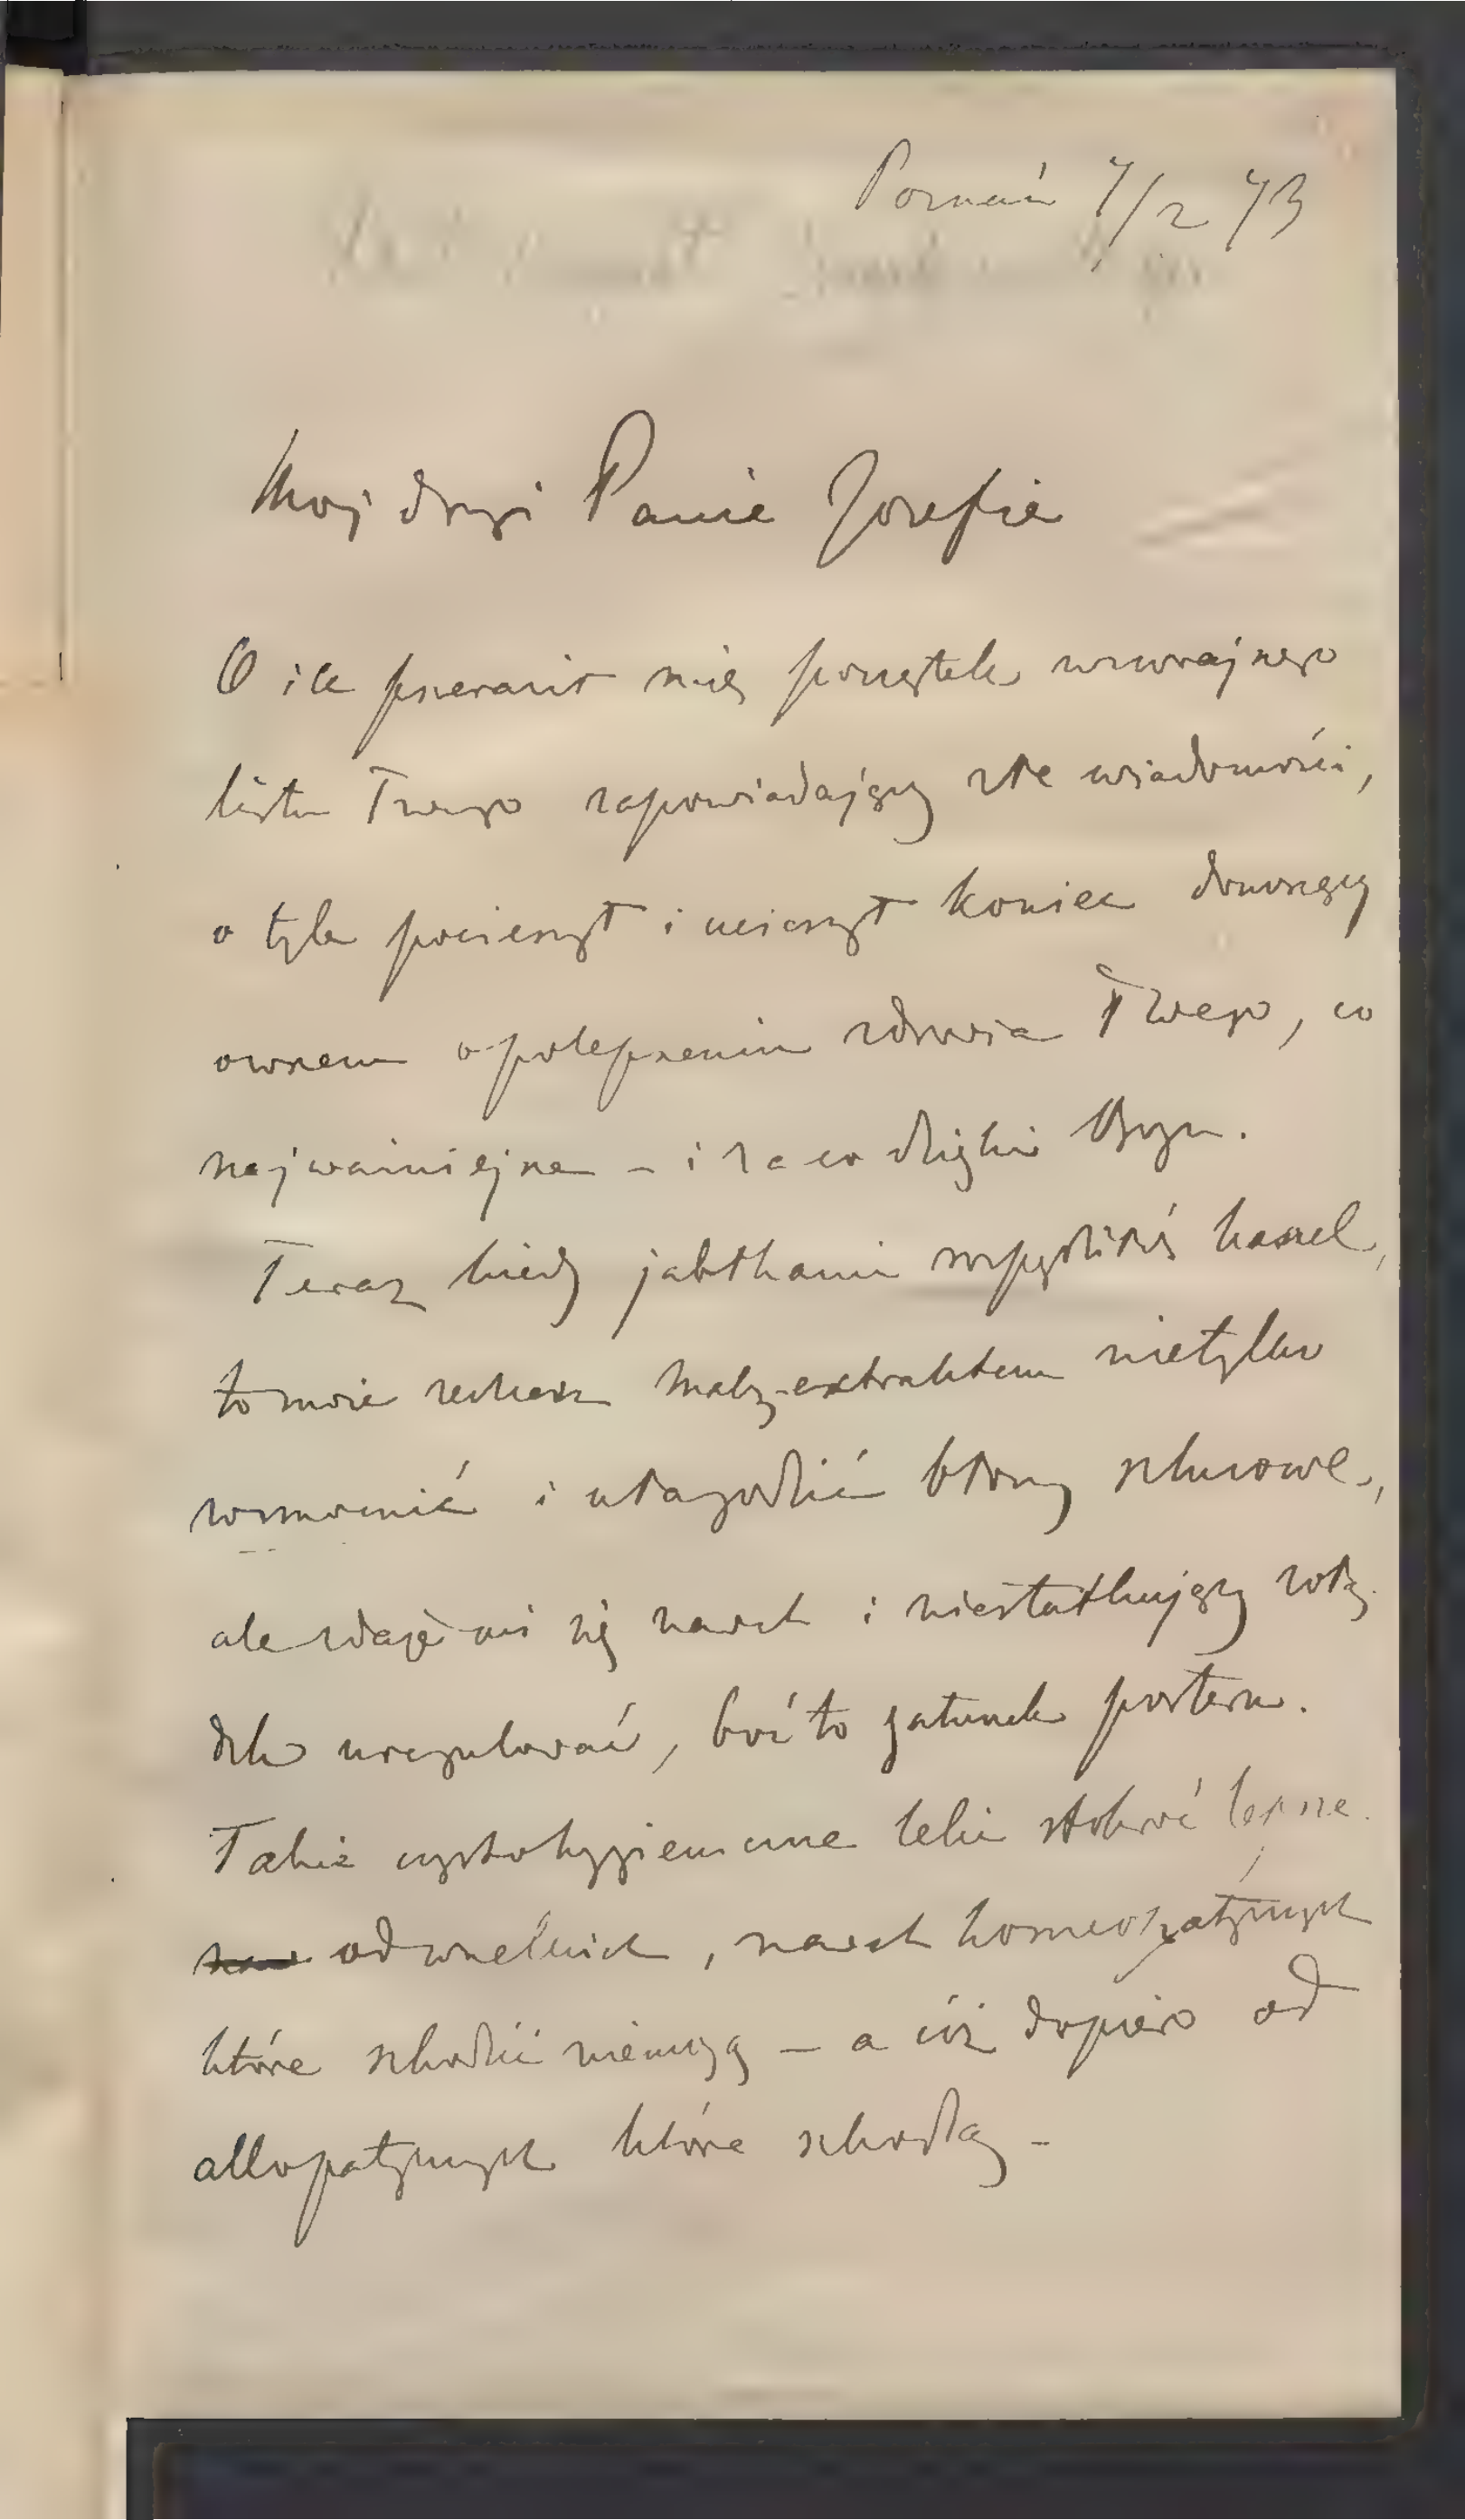 Poznań 7/2 73
Moj drogi Panie Jozefie
O ile przeraził mię początek wczorajszego
listu Twego zapowiadający złe wiadomości,
o tyle pocieszył i ucieszył koniec donoszący
owszem o polepszeniu zdrowia Twego, co
najważniejsze – i za co dzięki Bogu.
Teraz kiedy jabłkami rozpędziłeś kaszel,
to może zechcesz malz-extraktem nietylko
wzmocnić i ułagodzić błony śluzowe,
ale zdaje mi się nawet i niestatkujący żołą-
dek uregulować, boć to gatunek porteru.
Takie czystohygieniczne leki stokroć lepsze
od wszelkich, nawet homeopatycznych
które szkodzić niemogą – a cóż dopiero od
allopatycznych które szkodzą –